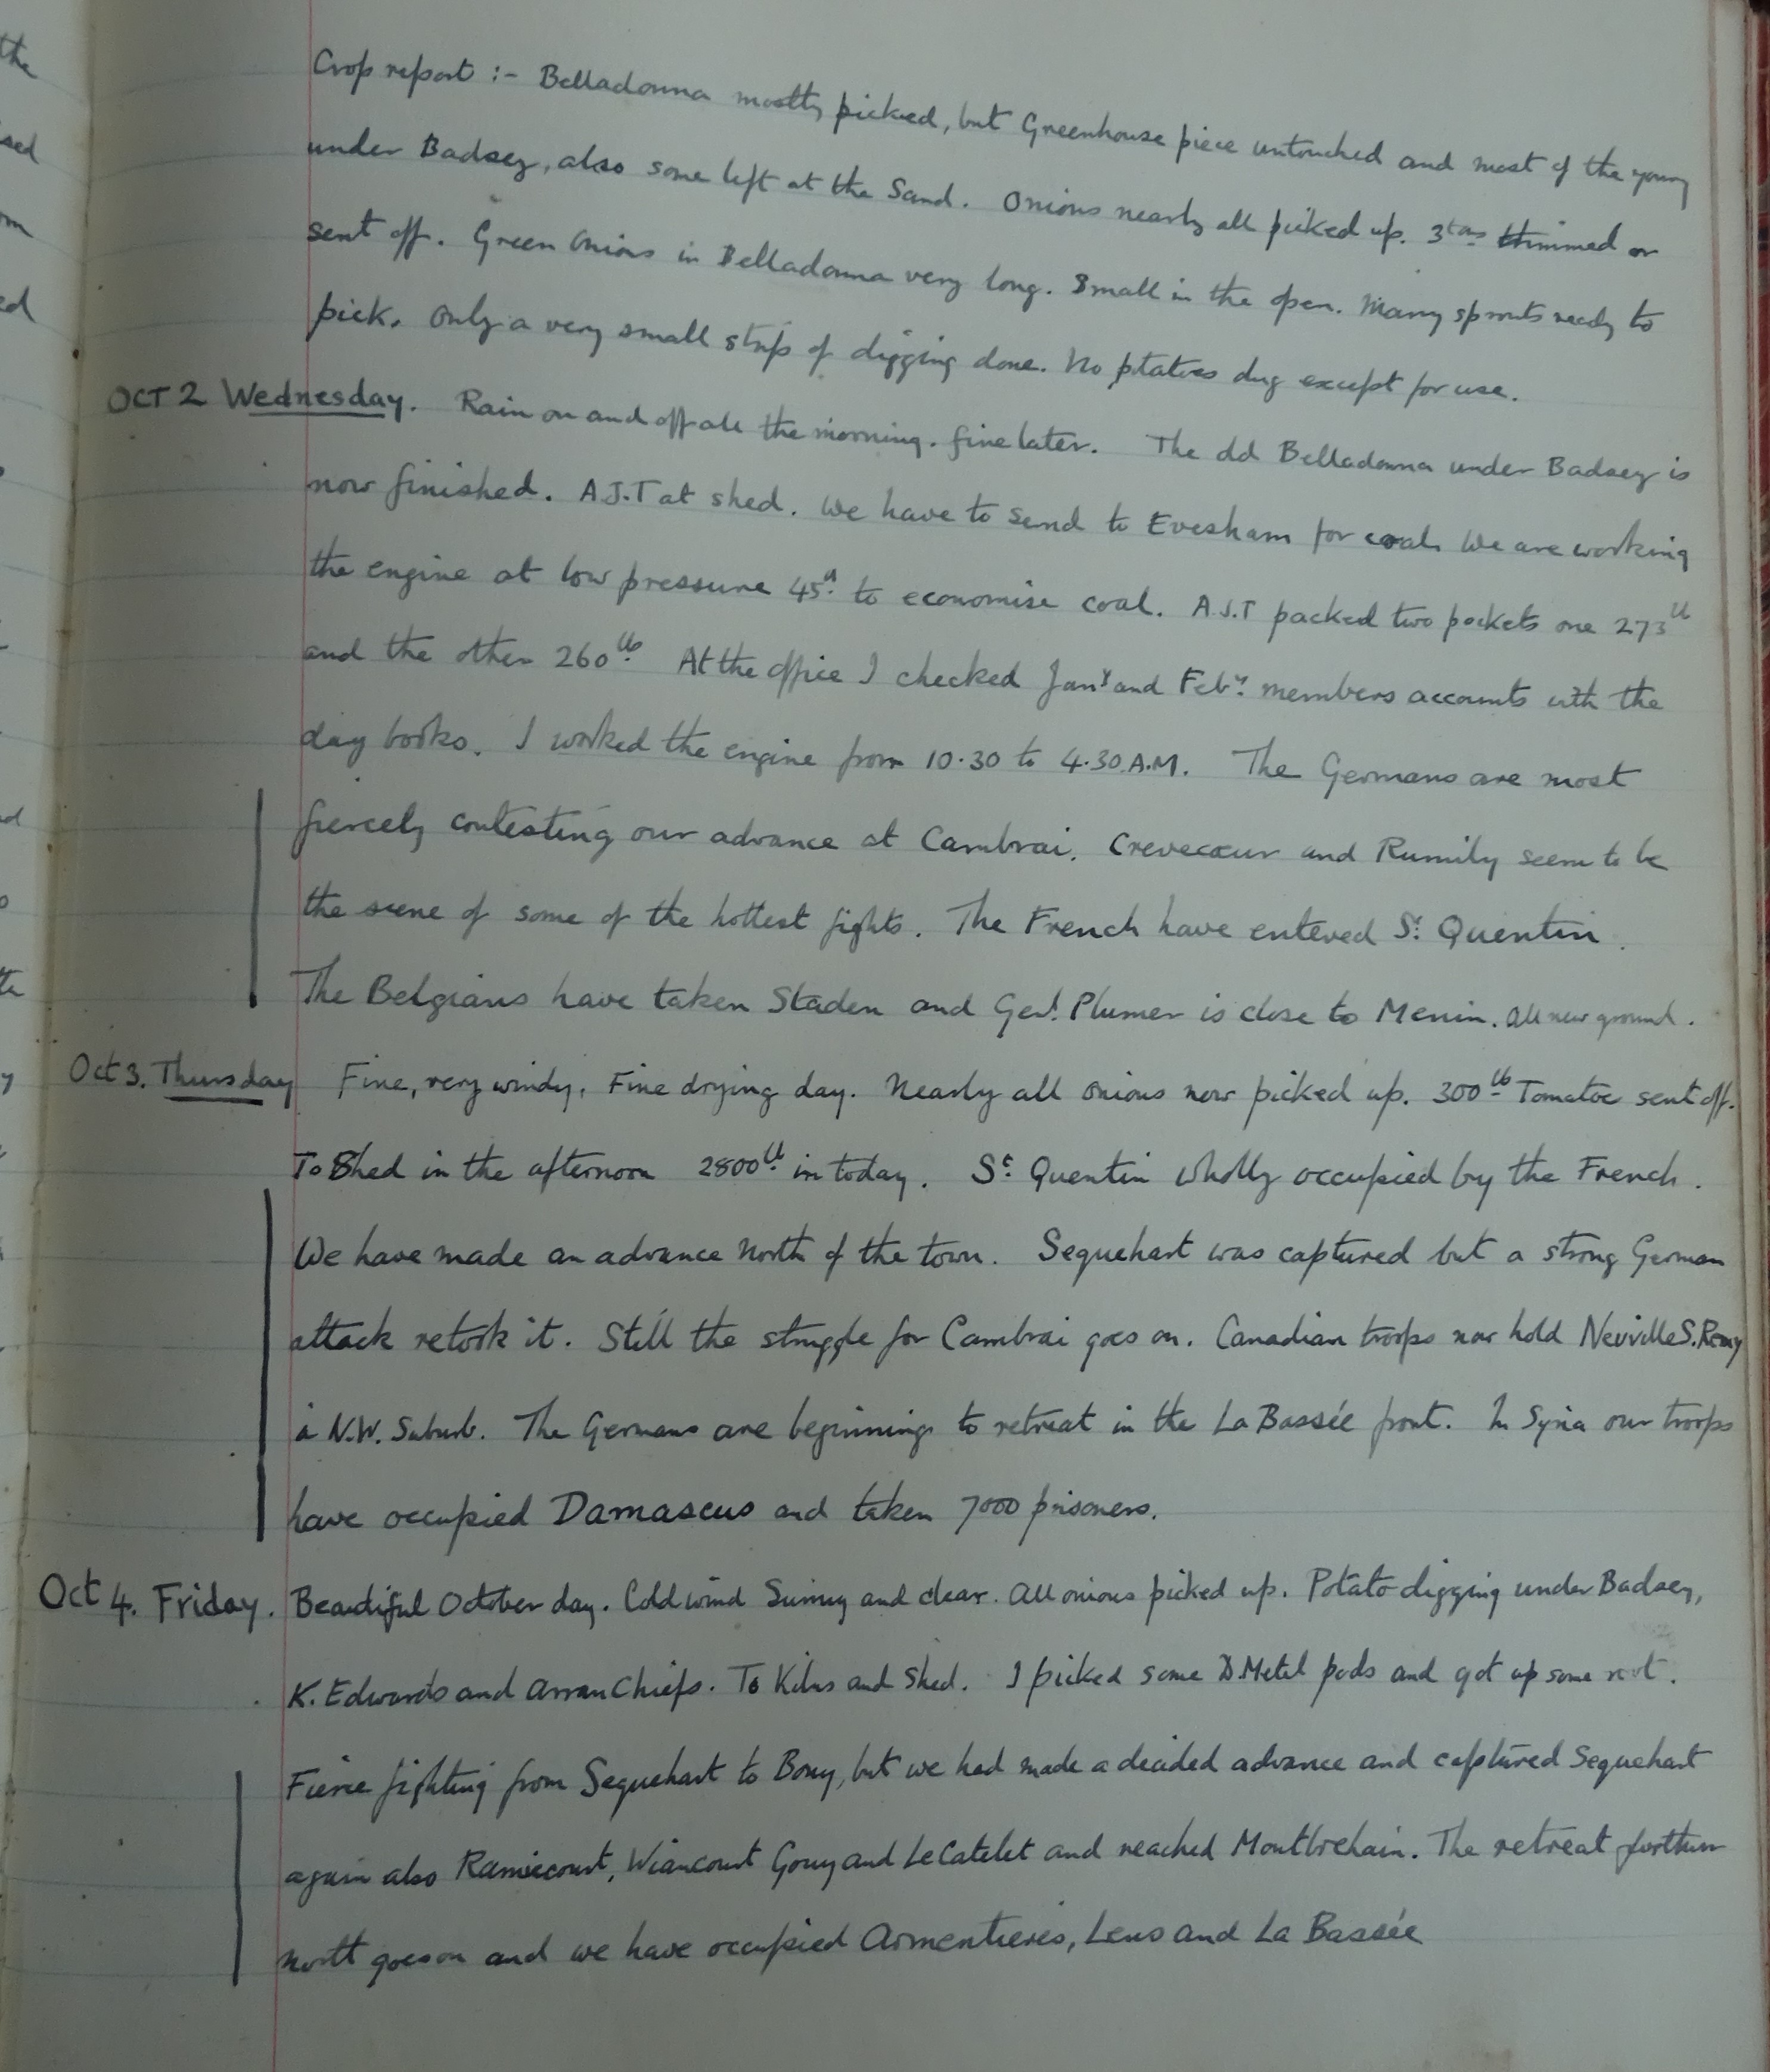 Crop report :- Belladonna mostly picked, but Greenhouse piece untouched and most of the young
under Badsey, also some left at the Sand. Onions nearly all picked up. 3 tons trimmed or
sent off. Green Onions in Belladonna very long. Small in the open. Many sprouts ready to
pick. Only a very small strip of digging done. No potatoes dug except for use.
OCT 2 Wednesday. Rain on and off all the morning. fine later. The old Belladonna under Badsey is
now finished. A.J.T at shed. We have to send to Evesham for coal. We are working
the engine at low pressure 45 to economise coal. A.J.T packed two pockets one 273 lb
and the other 260 lb. At the office I checked Jany and Feby. members accounts with the
day books. I worked the engine from 10.30 to 4.30 A.M. The Germans are most
fiercely contesting our advance at Cambrai. Crevecœur and Rumily seem to be
the scene of some of the hottest fights. The French have entered St. Quentin.
The Belgians have taken Staden and Genl. Plumer is close to Menin. All new ground.
Oct 3. Thursday Fine, very windy. Fine drying day. Nearly all onions now picked up. 300 lb Tomatoe sent off.
To Shed in the afternoon 2800 lb in today. St. Quentin wholly occupied by the French.
We have made an advance North of the town. Sequehart was captured but a strong German
attack retook it. Still the struggle for Cambrai goes on. Canadian troops now hold Neuville S. Remy
a N.W. Suburb. The Germans are beginning to retreat in the La Bassée front. In Syria our troops
have occupied Damascus and taken 7000 prisoners.
Oct 4. Friday. Beautiful October day. Cold wind Sunny and clear. All onions picked up. Potato digging under Badsey,
K. Edwards and Arran Chiefs. To Kilns and Shed. I picked some D. Metel pods and got up some root.
Fierce fighting from Sequehart to Bony, but we had made a decided advance and captured Sequehart
again also Ramicourt, Wiancourt Gouy and Le Catelet and reached Montbrehain. The retreat further
north goes on and we have occupied Armentieres, Lens and La Bassée